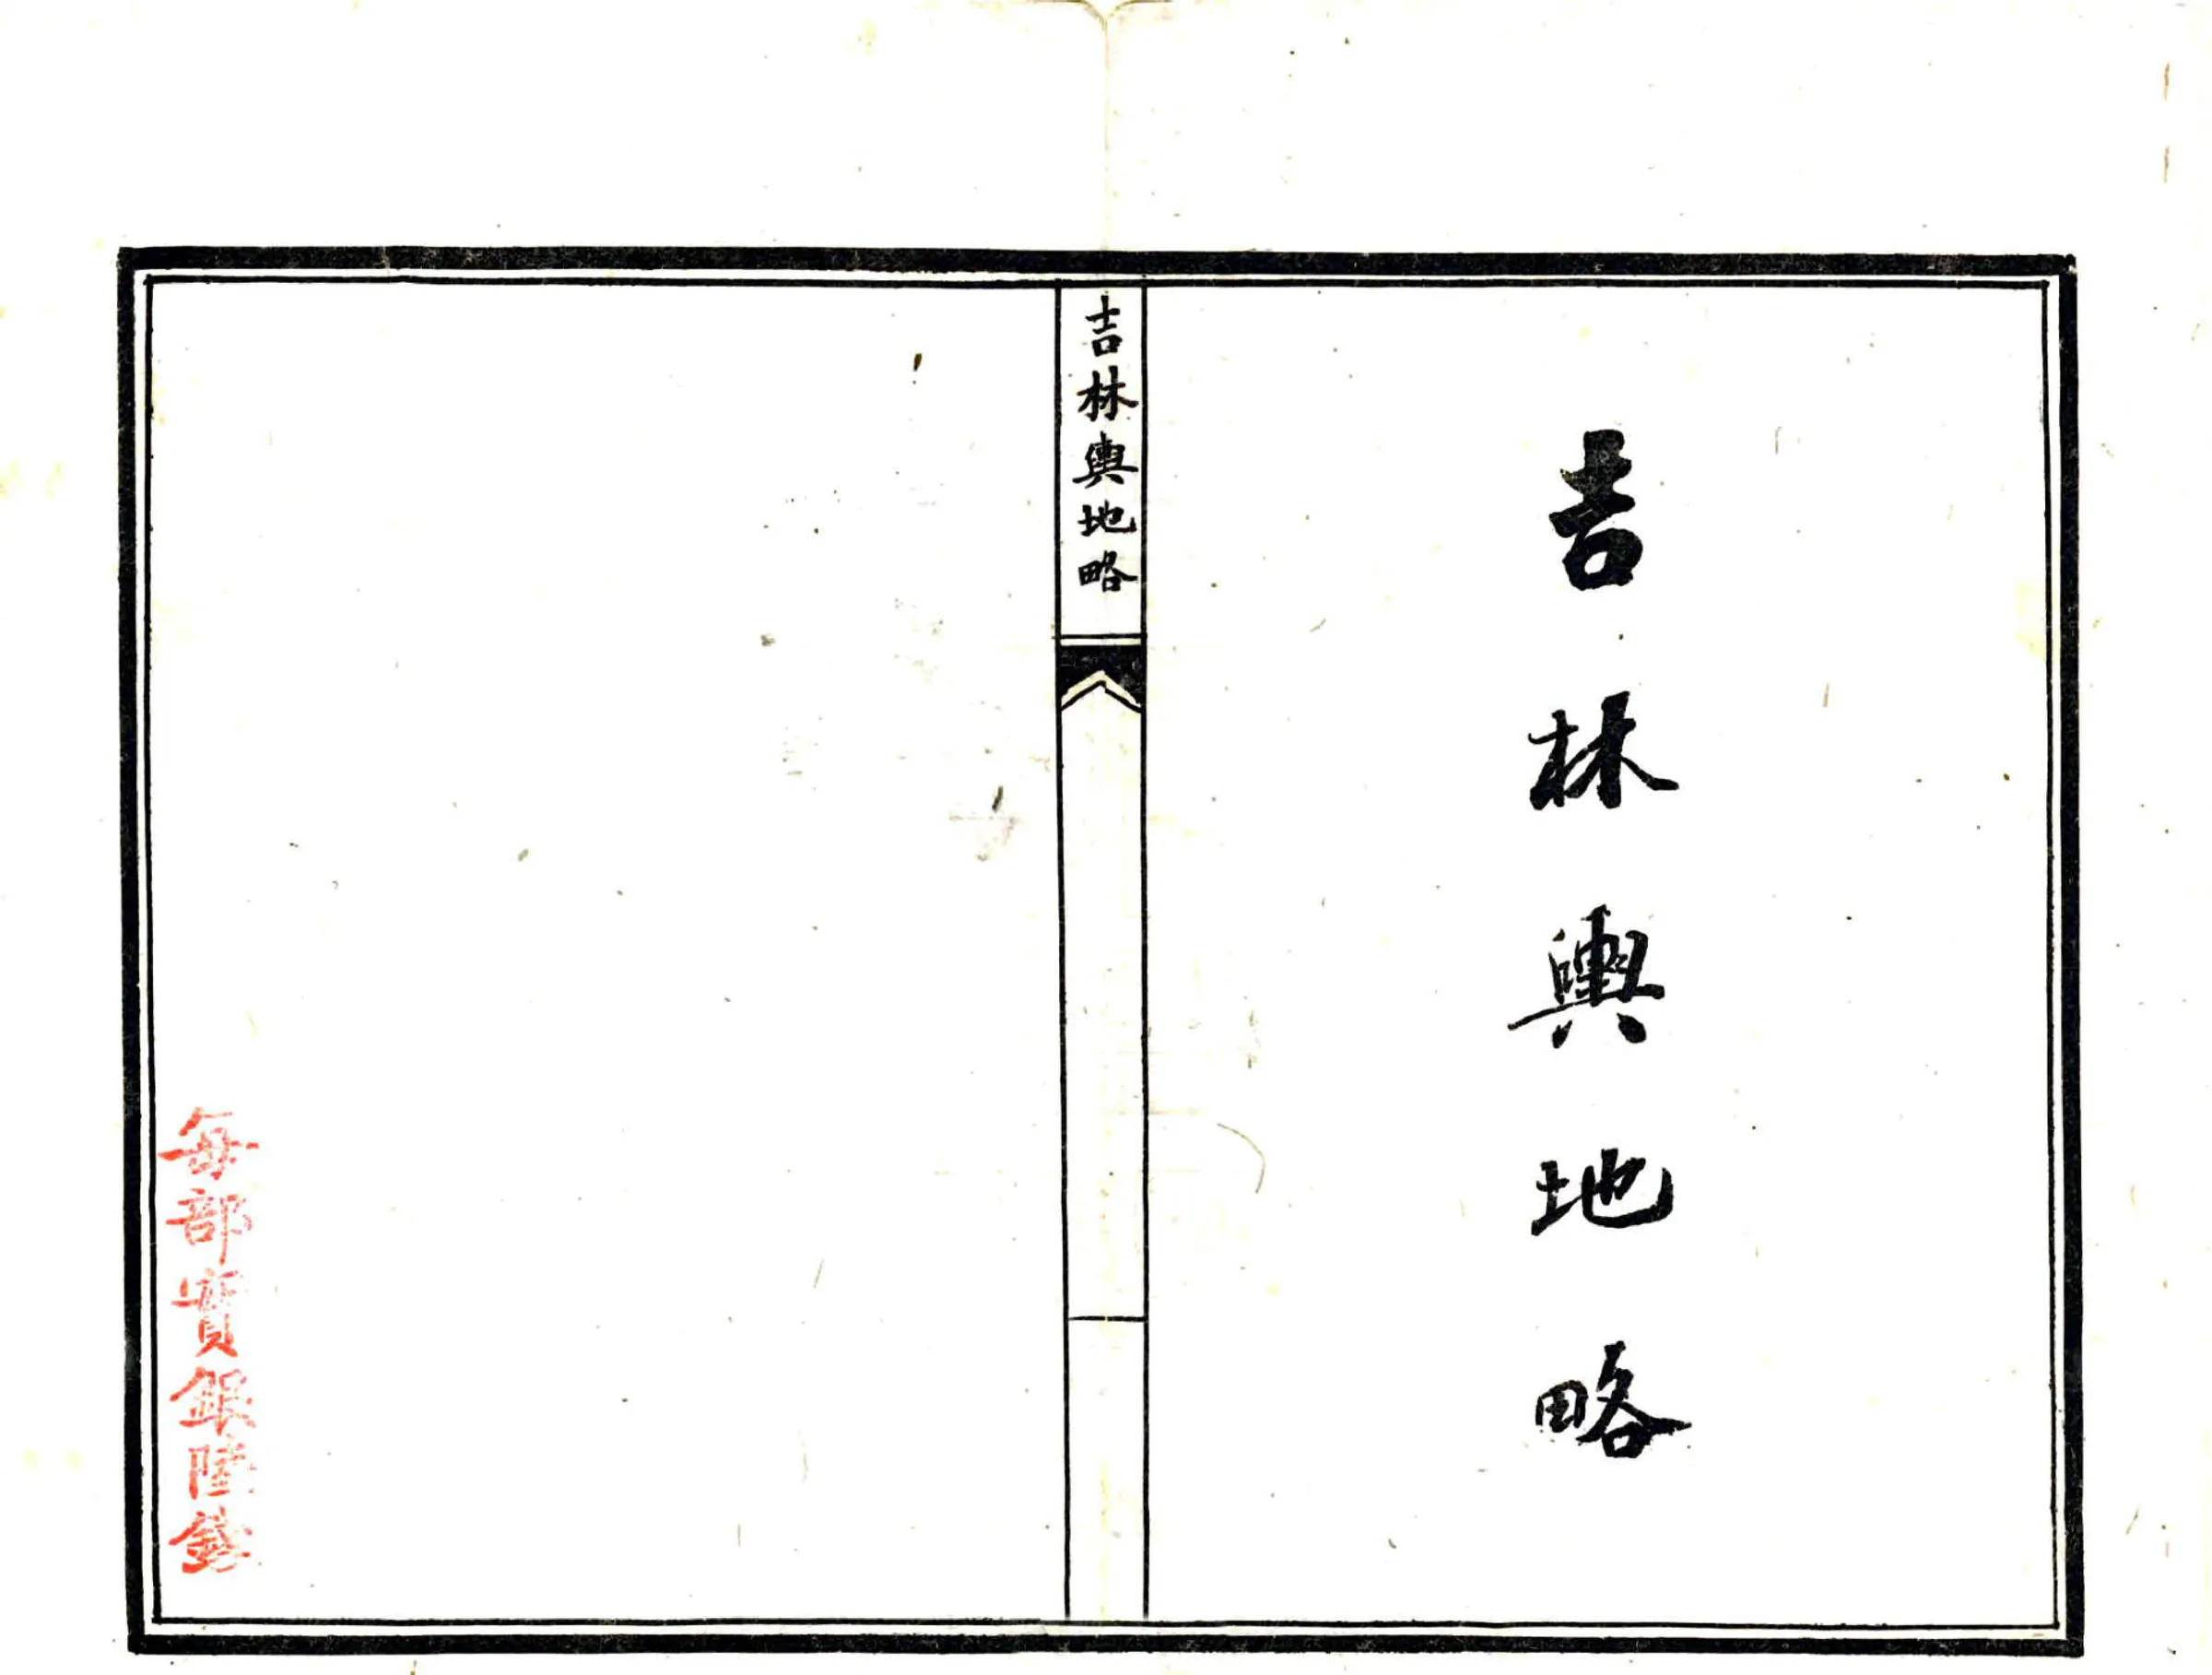 吉林輿地略
吉林輿地略
每部實銀陸錢